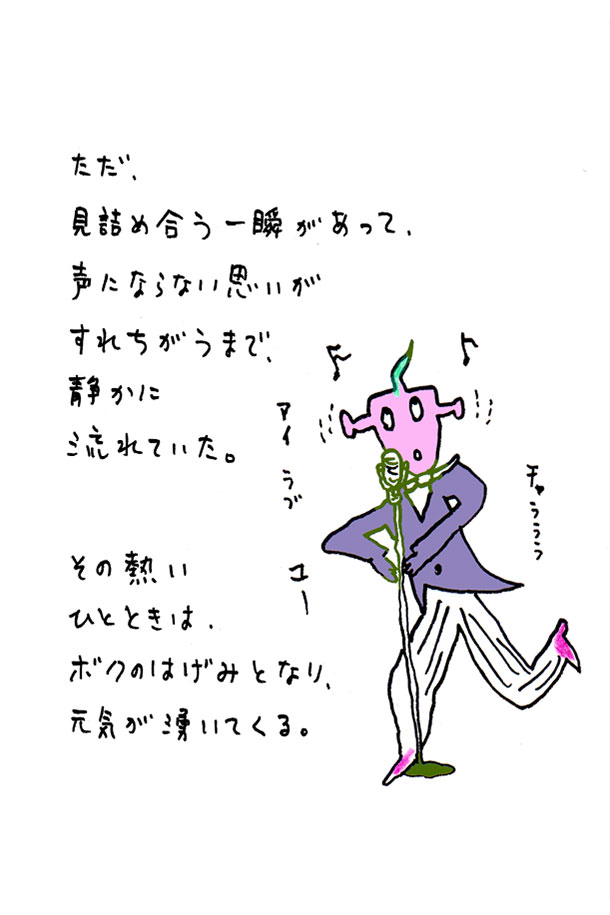 ただ、
見詰め合う一瞬があって、
声にならない思いが
すれちがうまで、
静かに
流れていた。
その熱い
ひとときは、
ボクのはげみとなり、
元気が湧いてくる。
アイ
らブ
ユー
チャううう